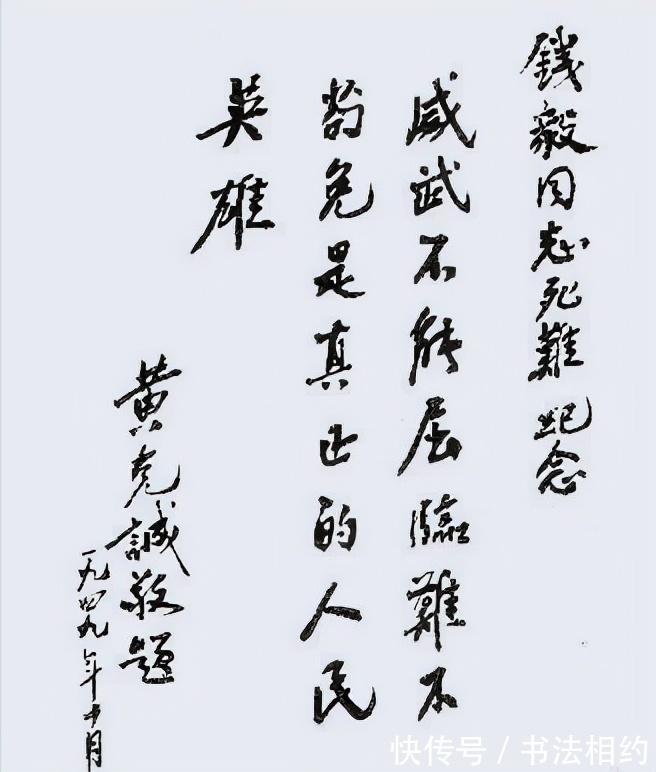 錢毅同志死難紀念
威武不能屈臨難不
苟免是真正的人民
英雄
黃克誠敬題
一九四九年十月
快传号／书法相约